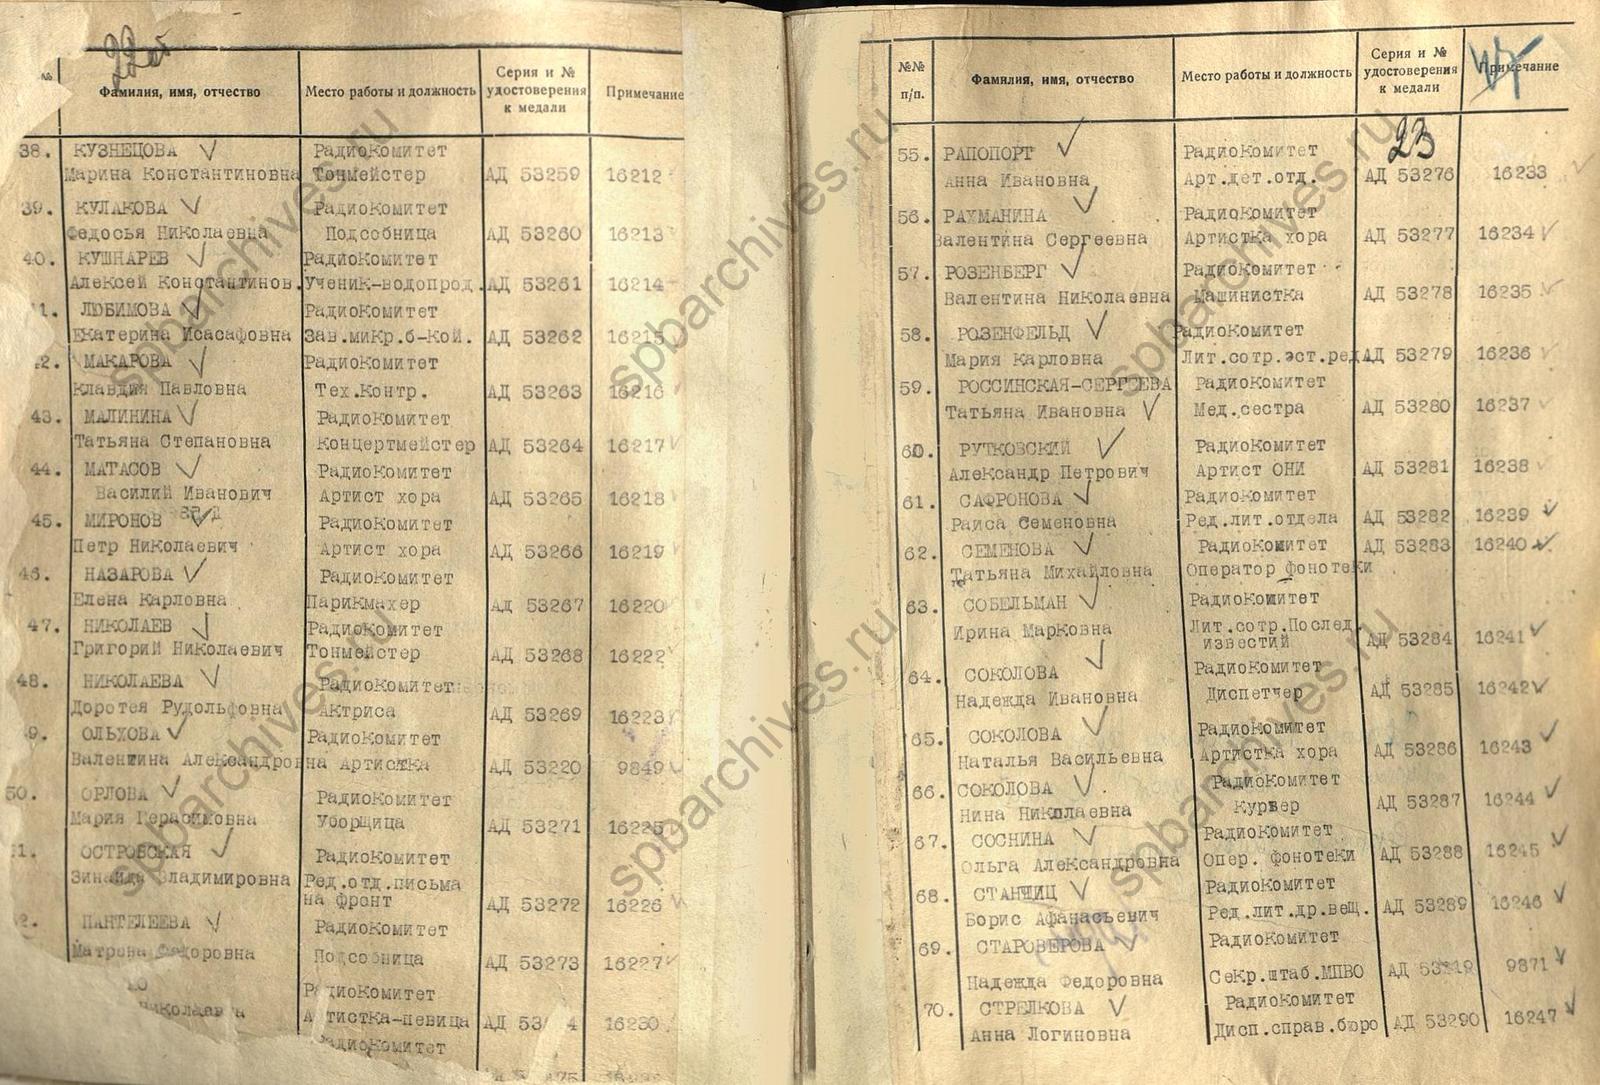 22об
№
Фамилия, имя, отчество
Место работы и должность
Серия и №
удостоверения
к медали
Примечание
38. КУЗНЕЦОВА РадиоКомитет
Марина Константиновна Тонмейстер АД 53259 16212
39. КУЛАКОВА РадиоКомитет
Федосья Николаевна Подсобница АД 53260 16213
40. КУШНАРЕВ РадиоКомитет
Алексей Константинов. Ученик-водопрод. АД 53261 16214
1. ЛЮБИМОВА РадиоКомитет
Екатерина Исасафовна Зав.микр.б-кой. АД 53262 16215
2. МАКАРОВА РадиоКомитет
Клавдия Павловна Тех.Контр. АД 53263 16216
43. МАЛИНИНА РадиоКомитет
Татьяна Степановна Концертмейстер АД 53264 16217
44. МАТАСОВ РадиоКомитет
Василий Иванович Артист хора АД 53265 16218
45. МИРОНОВ РадиоКомитет
Петр Николаевич Артист хора АД 53266 16219
46. НАЗАРОВА РадиоКомитет
Елена Карловна Парикмахер АД 53267 16220
47. НИКОЛАЕВ РадиоКомитет
Григорий Николаевич Тонмейстер АД 53268 16222
48. НИКОЛАЕВА РадиоКомитет
Доротея Рудольфовна Актриса АД 53269 16223
9. ОЛЬХОВА РадиоКомитет
Валентина Александровна Артистка АД 53220 9849
50. ОРЛОВА РадиоКомитет
Мария Герасимовна Уборщица АД 53271 16225
1. ОСТРОВСКАЯ РадиоКомитет
Зинаида Владимировна Ред.отд.письма
на фронт АД 53272 16226
2. ПАНТЕЛЕЕВА РадиоКомитет
Матрена Федоровна Подсобница АД 53273 16227
РадиоКомитет
Николаевна Артистка-певица АД 53 4 16230
РадиоКомитет
№№
п/п.
Фамилия, имя, отчество
Место работы и должность
Серия и №
удостоверения
к медали
Примечание
23
55. РАПОПОРТ РадиоКомитет
Анна Ивановна Арт.дет.отд. АД 53276 16233
56. РАХМАНИНА РадиоКомитет
Валентина Сергеевна Артистка хора АД 53277 16234
57. РОЗЕНБЕРГ РадиоКомитет
Валентина Николаевна Машинистка АД 53278 16235
58. РОЗЕНФЕЛЬД РадиоКомитет
Мария Карловна Лит.сотр.эст.ред АД 53279 16236
59. РОССИНСКАЯ-СЕРГЕЕВА РадиоКомитет
Татьяна Ивановна Мед.сестра АД 53280 16237
60. РУТКОВСКИЙ РадиоКомитет
Александр Петрович Артист ОНИ АД 53281 16238
61. САФРОНОВА РадиоКомитет
Раиса Семеновна Ред.лит.отдела АД 53282 16239
62. СЕМЕНОВА РадиоКомитет АД 53283 16240
Татьяна Михайловна Оператор фонотеки
63. СОБЕЛЬМАН РадиоКомитет
Ирина Марковна Лит.сотр.Послед.
известий АД 53284 16241
64. СОКОЛОВА РадиоКомитет
Надежда Ивановна Диспетчер АД 53285 16242
65. СОКОЛОВА РадиоКомитет
Наталья Васильевна Артистка хора АД 53286 16243
66. СОКОЛОВА РадиоКомитет
Нина Николаевна Курьер АД 53287 16244
67. СОСНИНА РадиоКомитет
Ольга Александровна Опер. фонотеки АД 53288 16245
68. СТАНШИЦ РадиоКомитет
Борис Афанасьевич Ред.лит.др.вещ. АД 53289 16246
69. СТАРОВЕРОВА РадиоКомитет
Надежда Федоровна Секр.штаб.МПВО АД 53219 9871
70. СТРЕЛКОВА РадиоКомитет
Анна Логиновна Дисп.справ.бюро АД 53290 16247
spbarchives.ru
spbarchives.ru
spbarchives.ru
spbarchives.ru
spbarchives.ru
spbarchives.ru